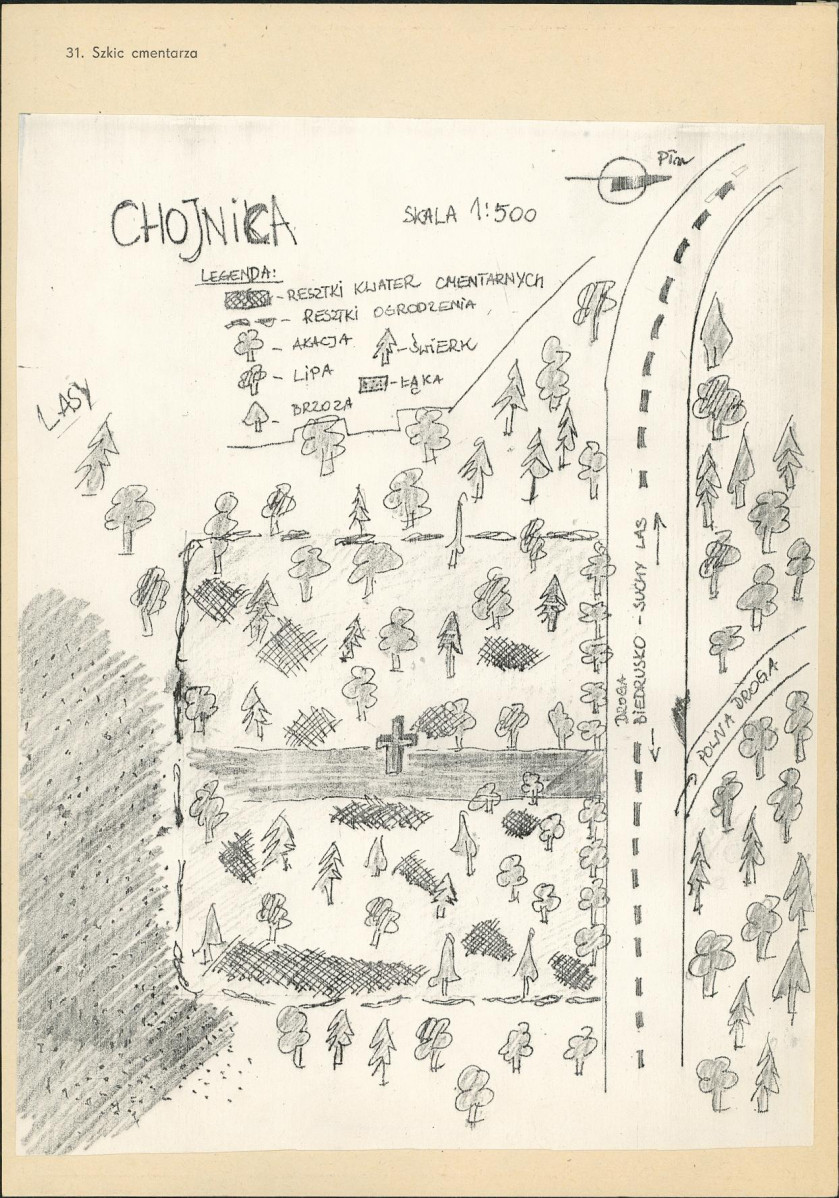 31. Szkic cmentarza
Płn
CHOJNICA
SKALA 1:500
LEGENDA:
- RESZTKI KWATER CMENTARNYCH
- RESZTKI OGRODZENIA
- AKACJA
- ŚWIERK
- LIPA
- ŁĄKA
- BRZOZA
LASY
DROGA
BIEDRUSKO - SUCHY LAS
POLNA DROGA